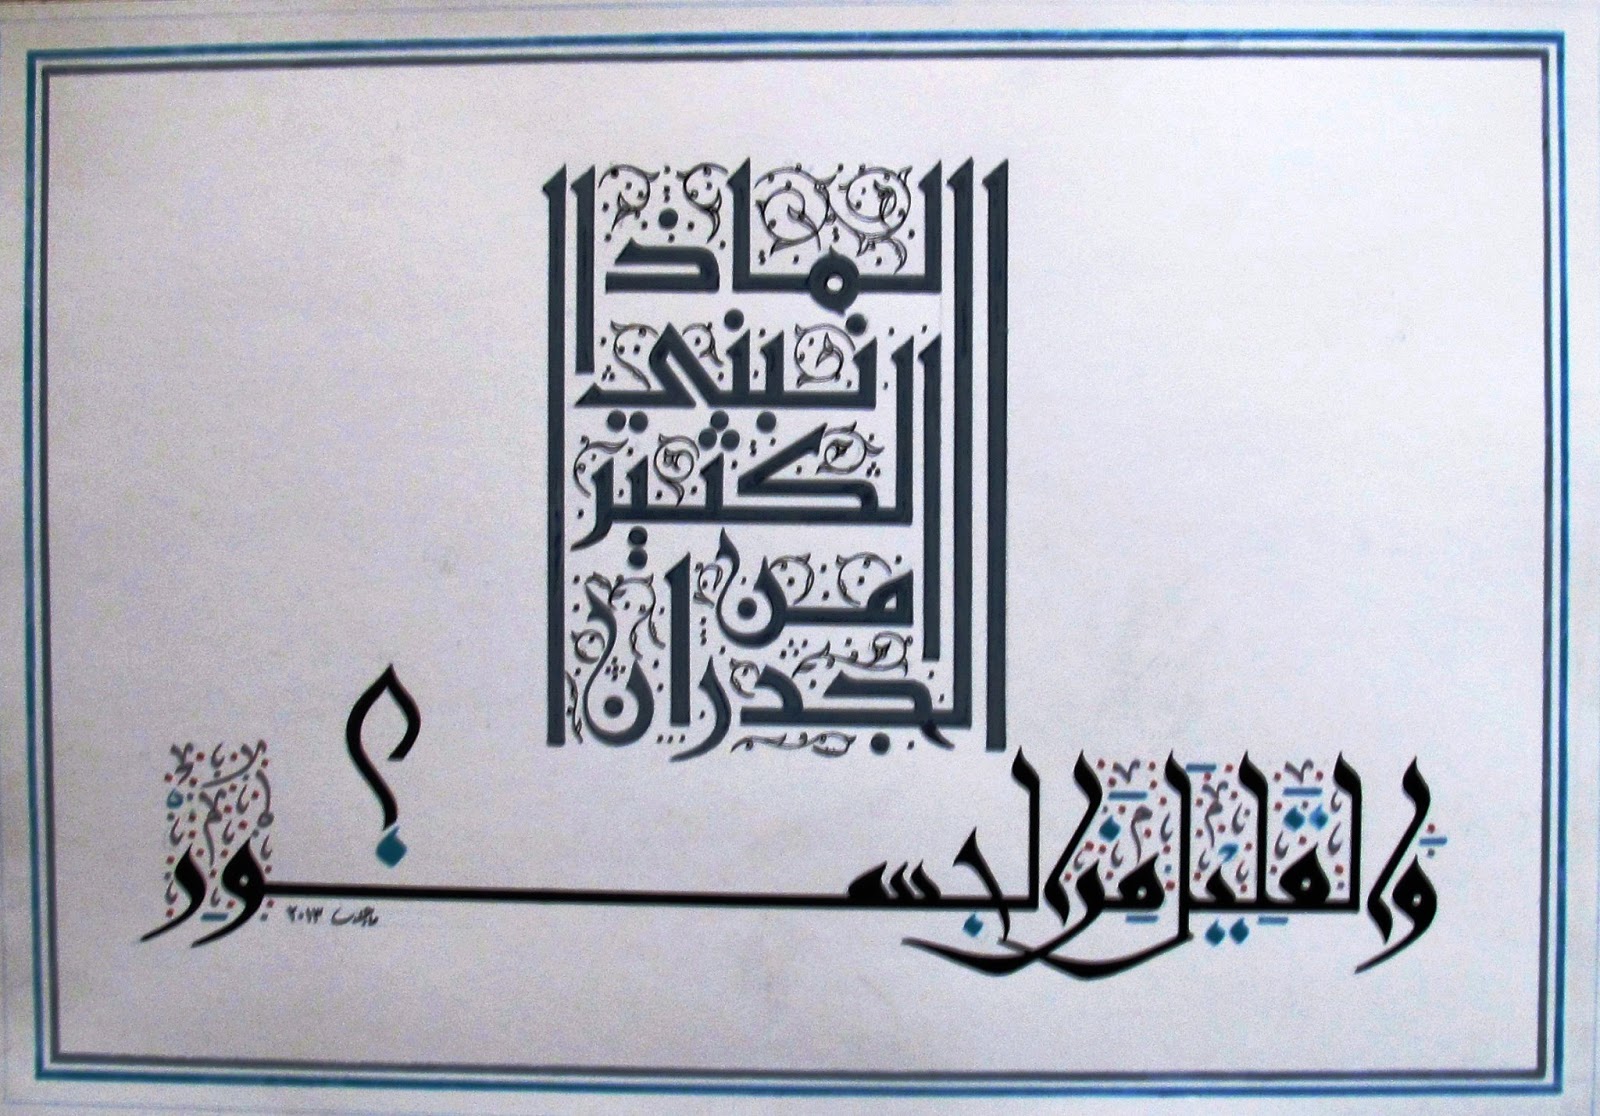 لماذا
نبني
الكثير
من
الجدران
والقليل من الجسور؟
٢٠١٣